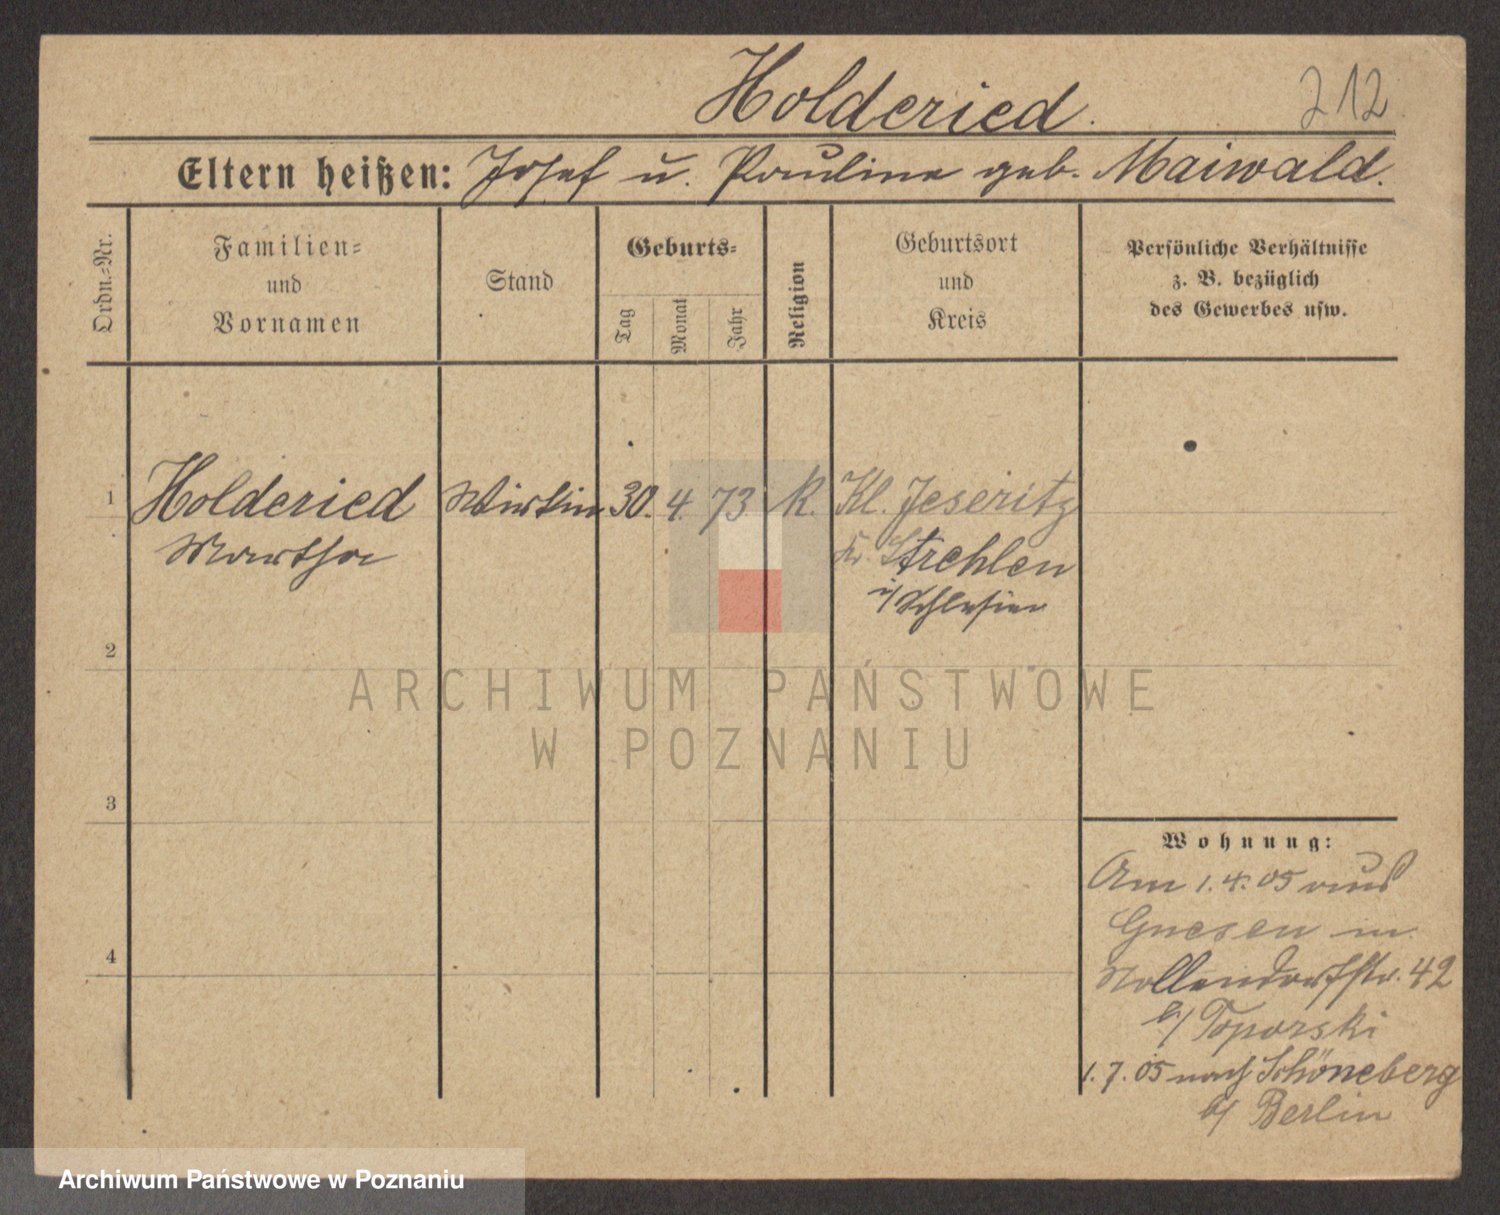 Holderied.
212
Eltern heißen: Josef u. Pauline geb. Maiwald.
Ordn.-Nr.
Familien-
und
Vornamen
Stand
Geburts-
Tag
Monat
Jahr
Religion
Geburtsort
und
Kreis
Persönliche Verhältnisse
z. B. bezüglich
des Gewerbes usw.
1 Holderied Wirtin 30. 4. 73 K. Kl. Jeseritz
Martha Kr. Strehlen
i/Schlesien
2
ARCHIWUM PAŃSTWOWE
W POZNANIU
3
Wohnung:
Am 1.4.05 aus
Gnesen in
4
Nollendorfstr. 42
b/ Toporski
1.7.05 nach Schöneberg
b/ Berlin
Archiwum Państwowe w Poznaniu